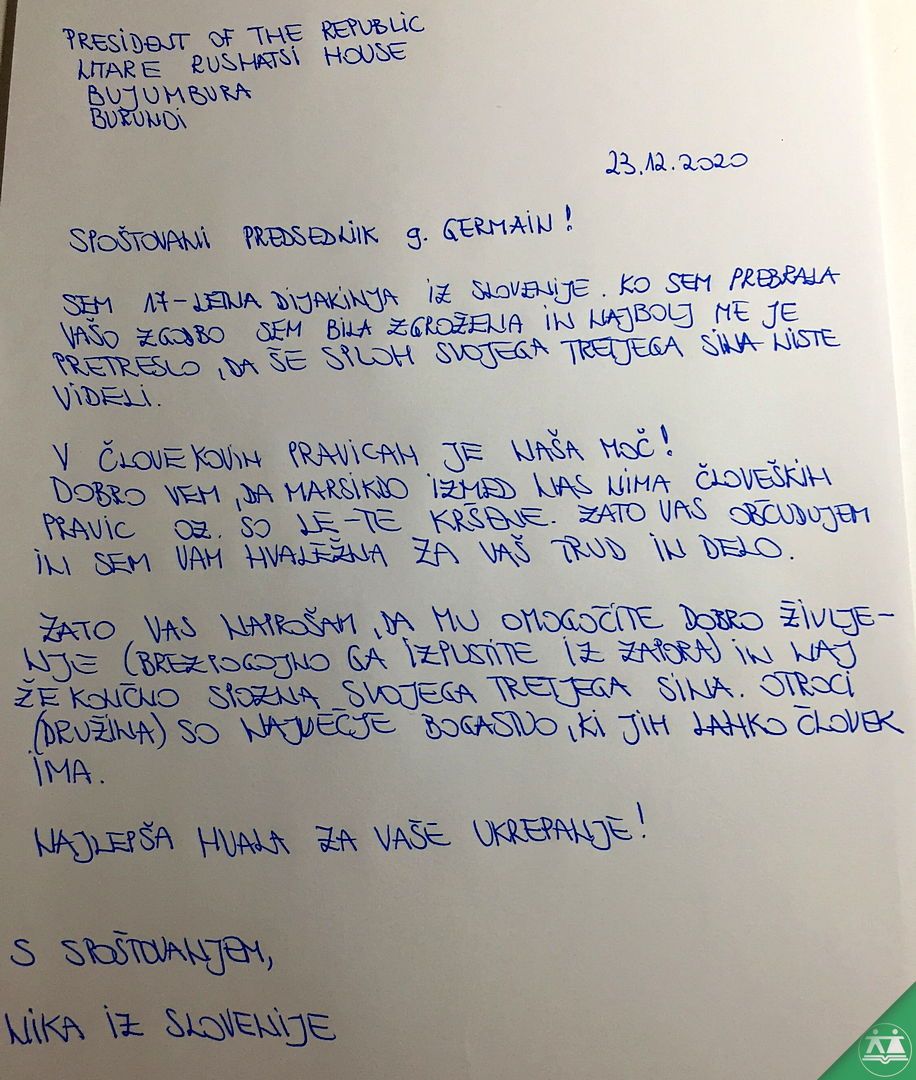 PRESIDENT OF THE REPUBLIC
NTARE RUSHATSI HOUSE
BUJUMBURA
BURUNDI
23.12.2020
SPOŠTOVANI PREDSEDNIK g. GERMAIN!
SEM 17-LETNA DIJAKINJA IZ SLOVENIJE. KO SEM PREBRALA
VAŠO ZGODBO SEM BILA ZGROŽENA IN NAJBOLJ ME JE
PRETRESLO, DA ŠE SPLOH SVOJEGA TRETJEGA SINA NISTE
VIDELI.
V ČLOVEKOVIH PRAVICAH JE NAŠA MOČ!
DOBRO VEM, DA MARSIKDO IZMED NAS NIMA ČLOVEŠKIH
PRAVIC OZ. SO LE-TE KRŠENE. ZATO VAS OBČUDUJEM
IN SEM VAM HVALEŽNA ZA VAŠ TRUD IN DELO.
ZATO VAS NAPROŠAM, DA MU OMOGOČITE DOBRO ŽIVLJE-
NJE (BREZPOGOJNO GA IZPUSTITE IZ ZAPORA) IN NAJ
ŽE KONČNO SPOZNA SVOJEGA TRETJEGA SINA. OTROCI
(DRUŽINA) SO NAJVEČJE BOGASTVO, KI JIH LAHKO ČLOVEK
IMA.
NAJLEPŠA HVALA ZA VAŠE UKREPANJE!
S SPOŠTOVANJEM,
NIKA IZ SLOVENIJE